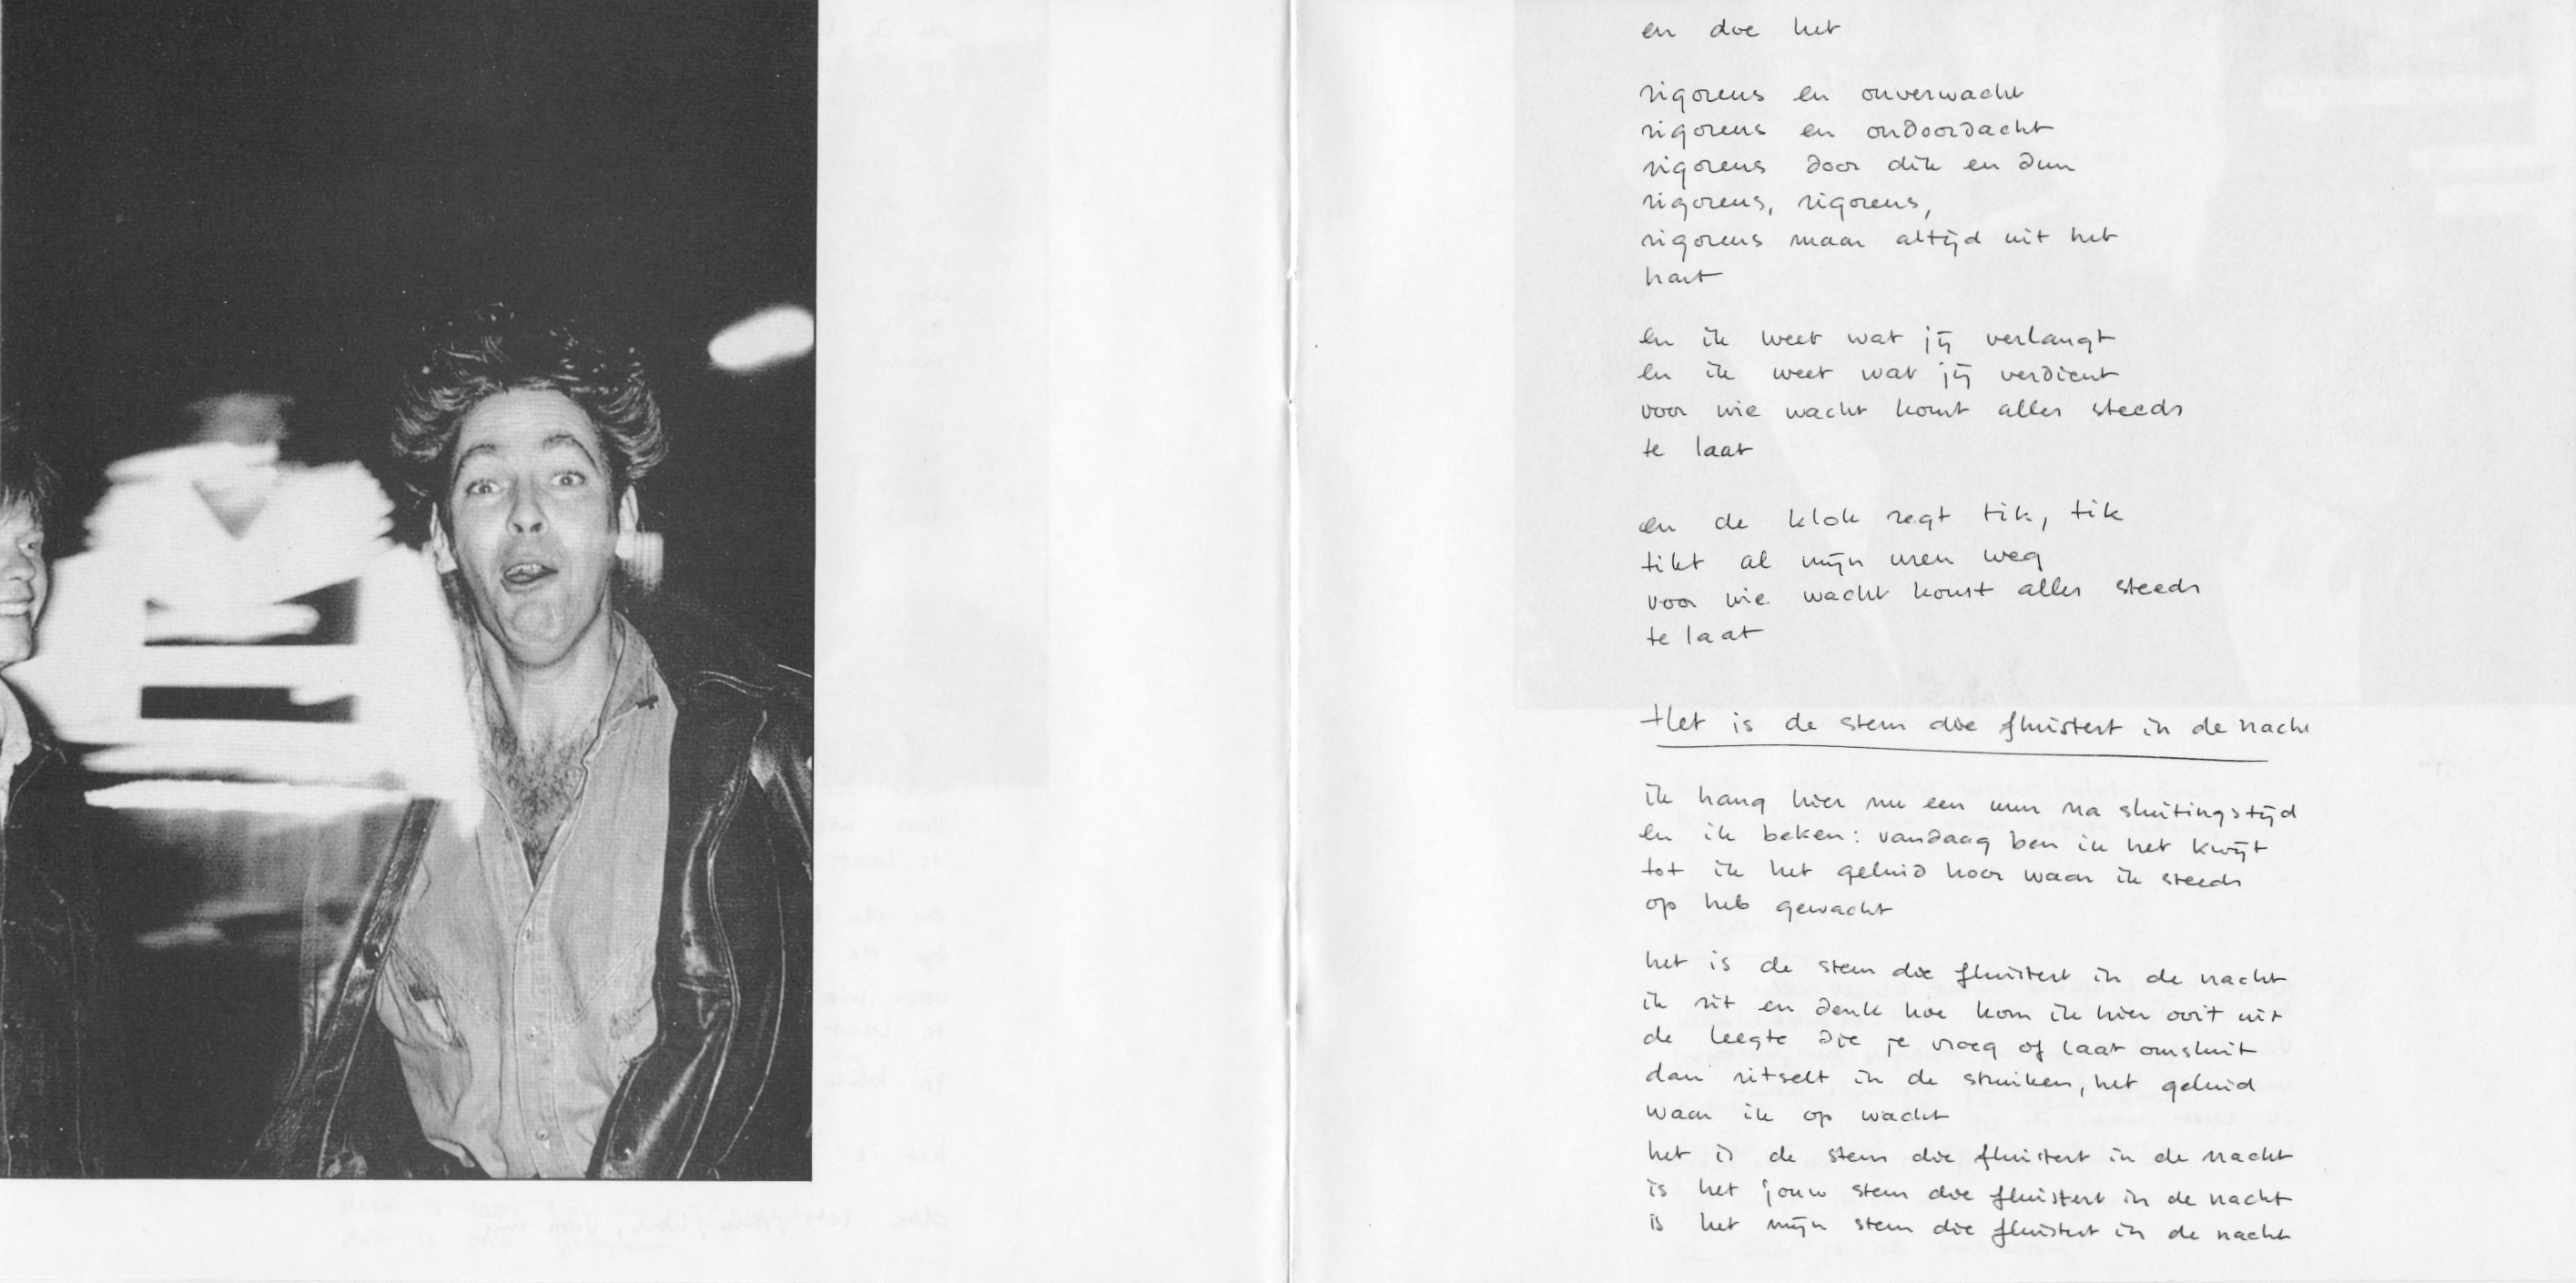 en doe het
rigoreus en onverwacht
rigoreus en ondoordacht
rigoreus door dik en dun
rigoreus, rigoreus,
rigoreus maar altijd uit het
hart
en ik weet wat jij verlangt
en ik weet wat jij verdient
voor wie wacht komt alles steeds
te laat
en de klok zegt tik, tik
tikt al mijn uren weg
voor wie wacht komt alles steeds
te laat
Het is de stem die fluistert in de nacht
ik hang hier nu een uur na sluitingstijd
en ik beken: vandaag ben ik het kwijt
tot ik het geluid hoor waar ik steeds
op heb gewacht
het is de stem die fluistert in de nacht
ik zit en denk hoe kom ik hier ooit uit
de leegte die je vroeg of laat omsluit
dan ritselt in de struiken, het geluid
waar ik op wacht
het is de stem die fluistert in de nacht
is het jouw stem die fluistert in de nacht
is het mijn stem die fluistert in de nacht